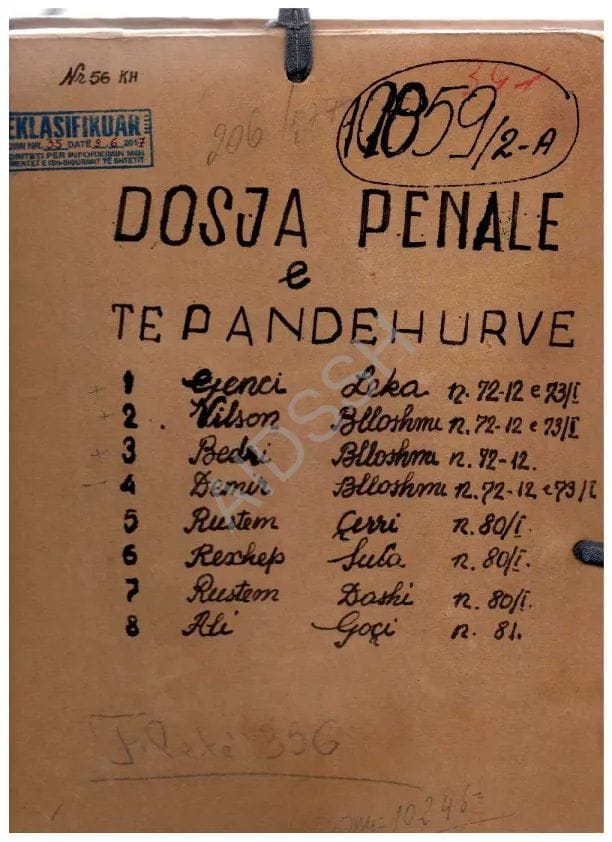 Nr 56 KH
10859/2-A
EKLASIFIKUAR
NR. 35 DATE 9.6 2017
ORITETI PER INFORMIMIN MBI
MENTET E ISH-SIGURIMIT TE SHTETIT
206
DOSJA PENALE
e
TE PANDEHURVE
1 Genci Leka n. 72-12 e 73/I
2 Vilson Blloshmi n. 72-12 e 73/I
3 Bedri Blloshmi n. 72-12.
4 Demir Blloshmi n. 72-12 e 73/I
5 Rustem Çerri n. 80/I.
6 Rexhep Sula n. 80/I.
7 Rustem Dashi n. 80/I.
8 Ali Goçi n. 81.
AIDSSH
Fletë 356
10246